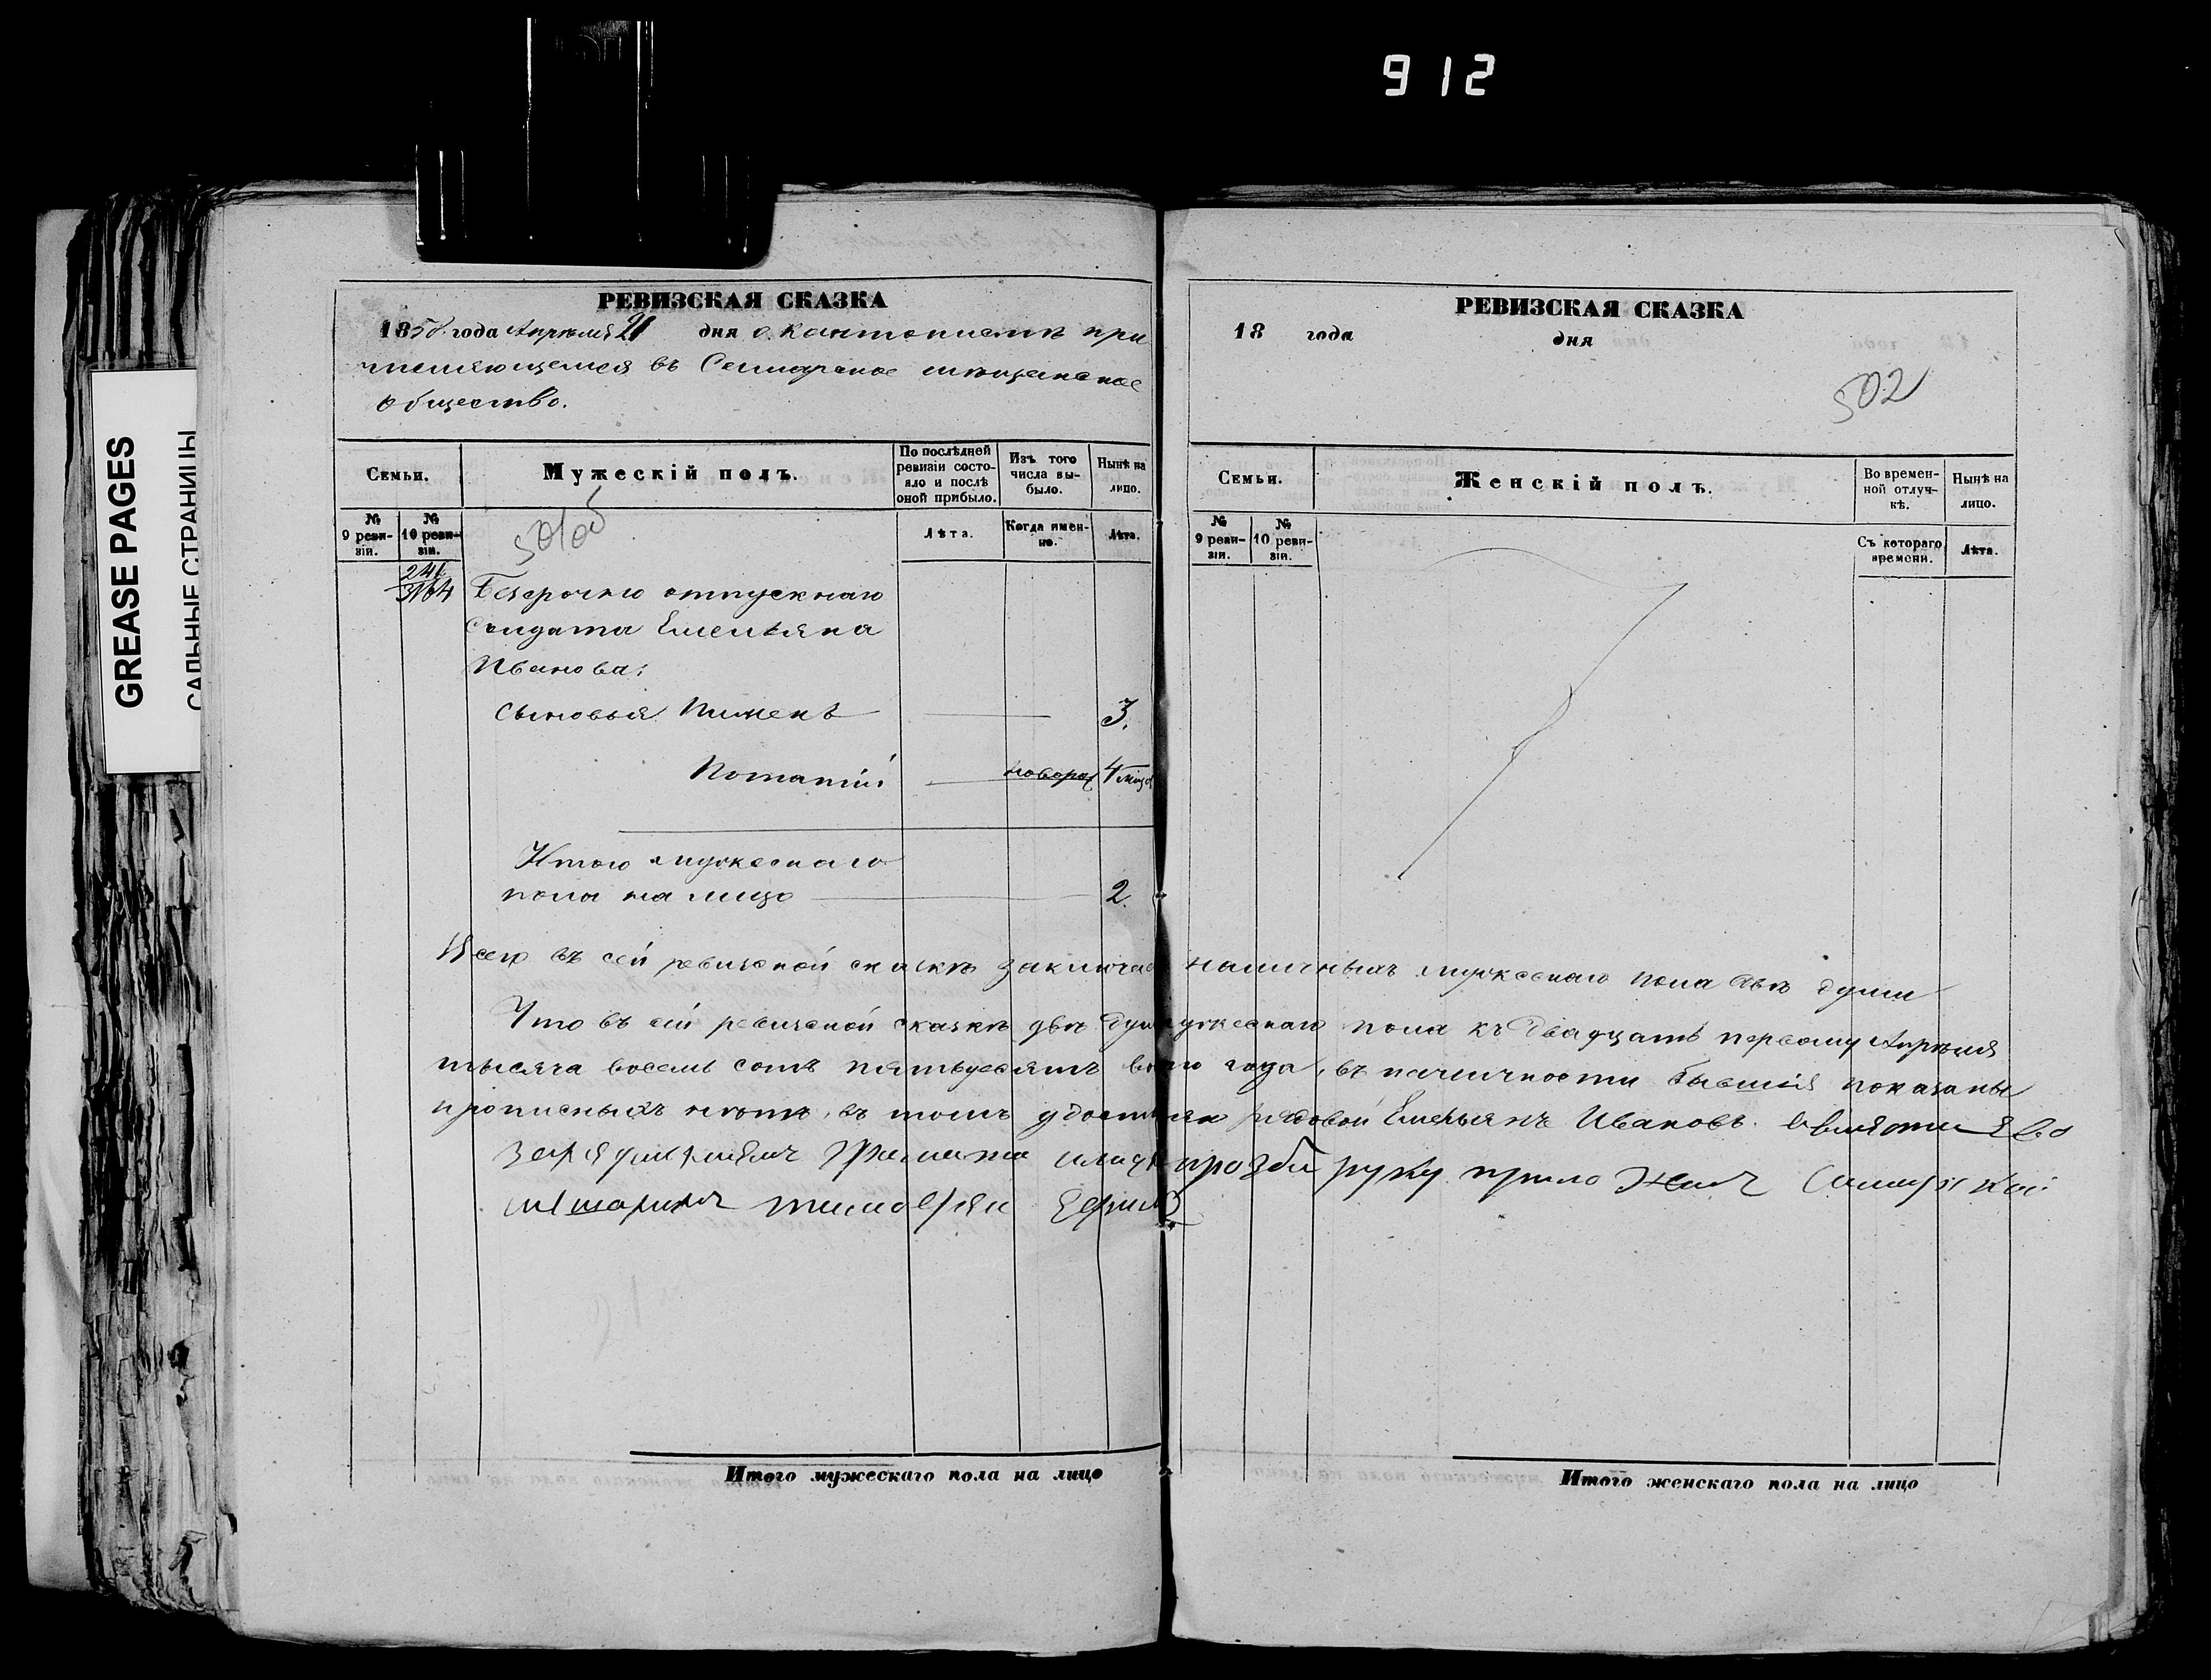 912
GREASE PAGES
САЛЬНЫЕ СТРАНИЦЫ
РЕВИЗСКАЯ СКАЗКА
1858 года Апрѣля 21 дня о кантонистѣ при
числяющемся въ Самарское мѣщанское
общество.
Семьи.
Мужескій полъ.
По послѣдней ревизіи состояло и послѣ оной прибыло.
Изъ того числа выбыло.
Нынѣ на лицо.
№ 9 ревизіи.
№ 10 ревизіи.
Лѣта.
Когда именно.
Лѣта.
501об
3164
Безсрочно отпускнаго
солдата Емельяна
Иванова:
сыновья Пименъ 3.
Потапій новорож 4 мѣсяц
Итого мужескаго
пола на лицо 2.
РЕВИЗСКАЯ СКАЗКА
18 года дня
502
Семьи.
Женскій полъ.
Во временной отлучкѣ.
Нынѣ на лицо.
№ 9 ревизіи.
№ 10 ревизіи.
Съ котораго времени.
Лѣта.
Всего въ сей ревизской сказкѣ заключае наличныхъ мужескаго пола двѣ души
Что въ сей ревизской сказкѣ двѣ душ мужескаго пола къ двадцать первому Апрѣля
тысяча восемь сотъ пятьдесятъ во го года, въ наличности бывшія показаны
прописныхъ нѣтъ, въ томъ удост рядовой Емельянъ Ивановъ.
руку приложилъ
Итого мужескаго пола на лицо
Итого женскаго пола на лицо